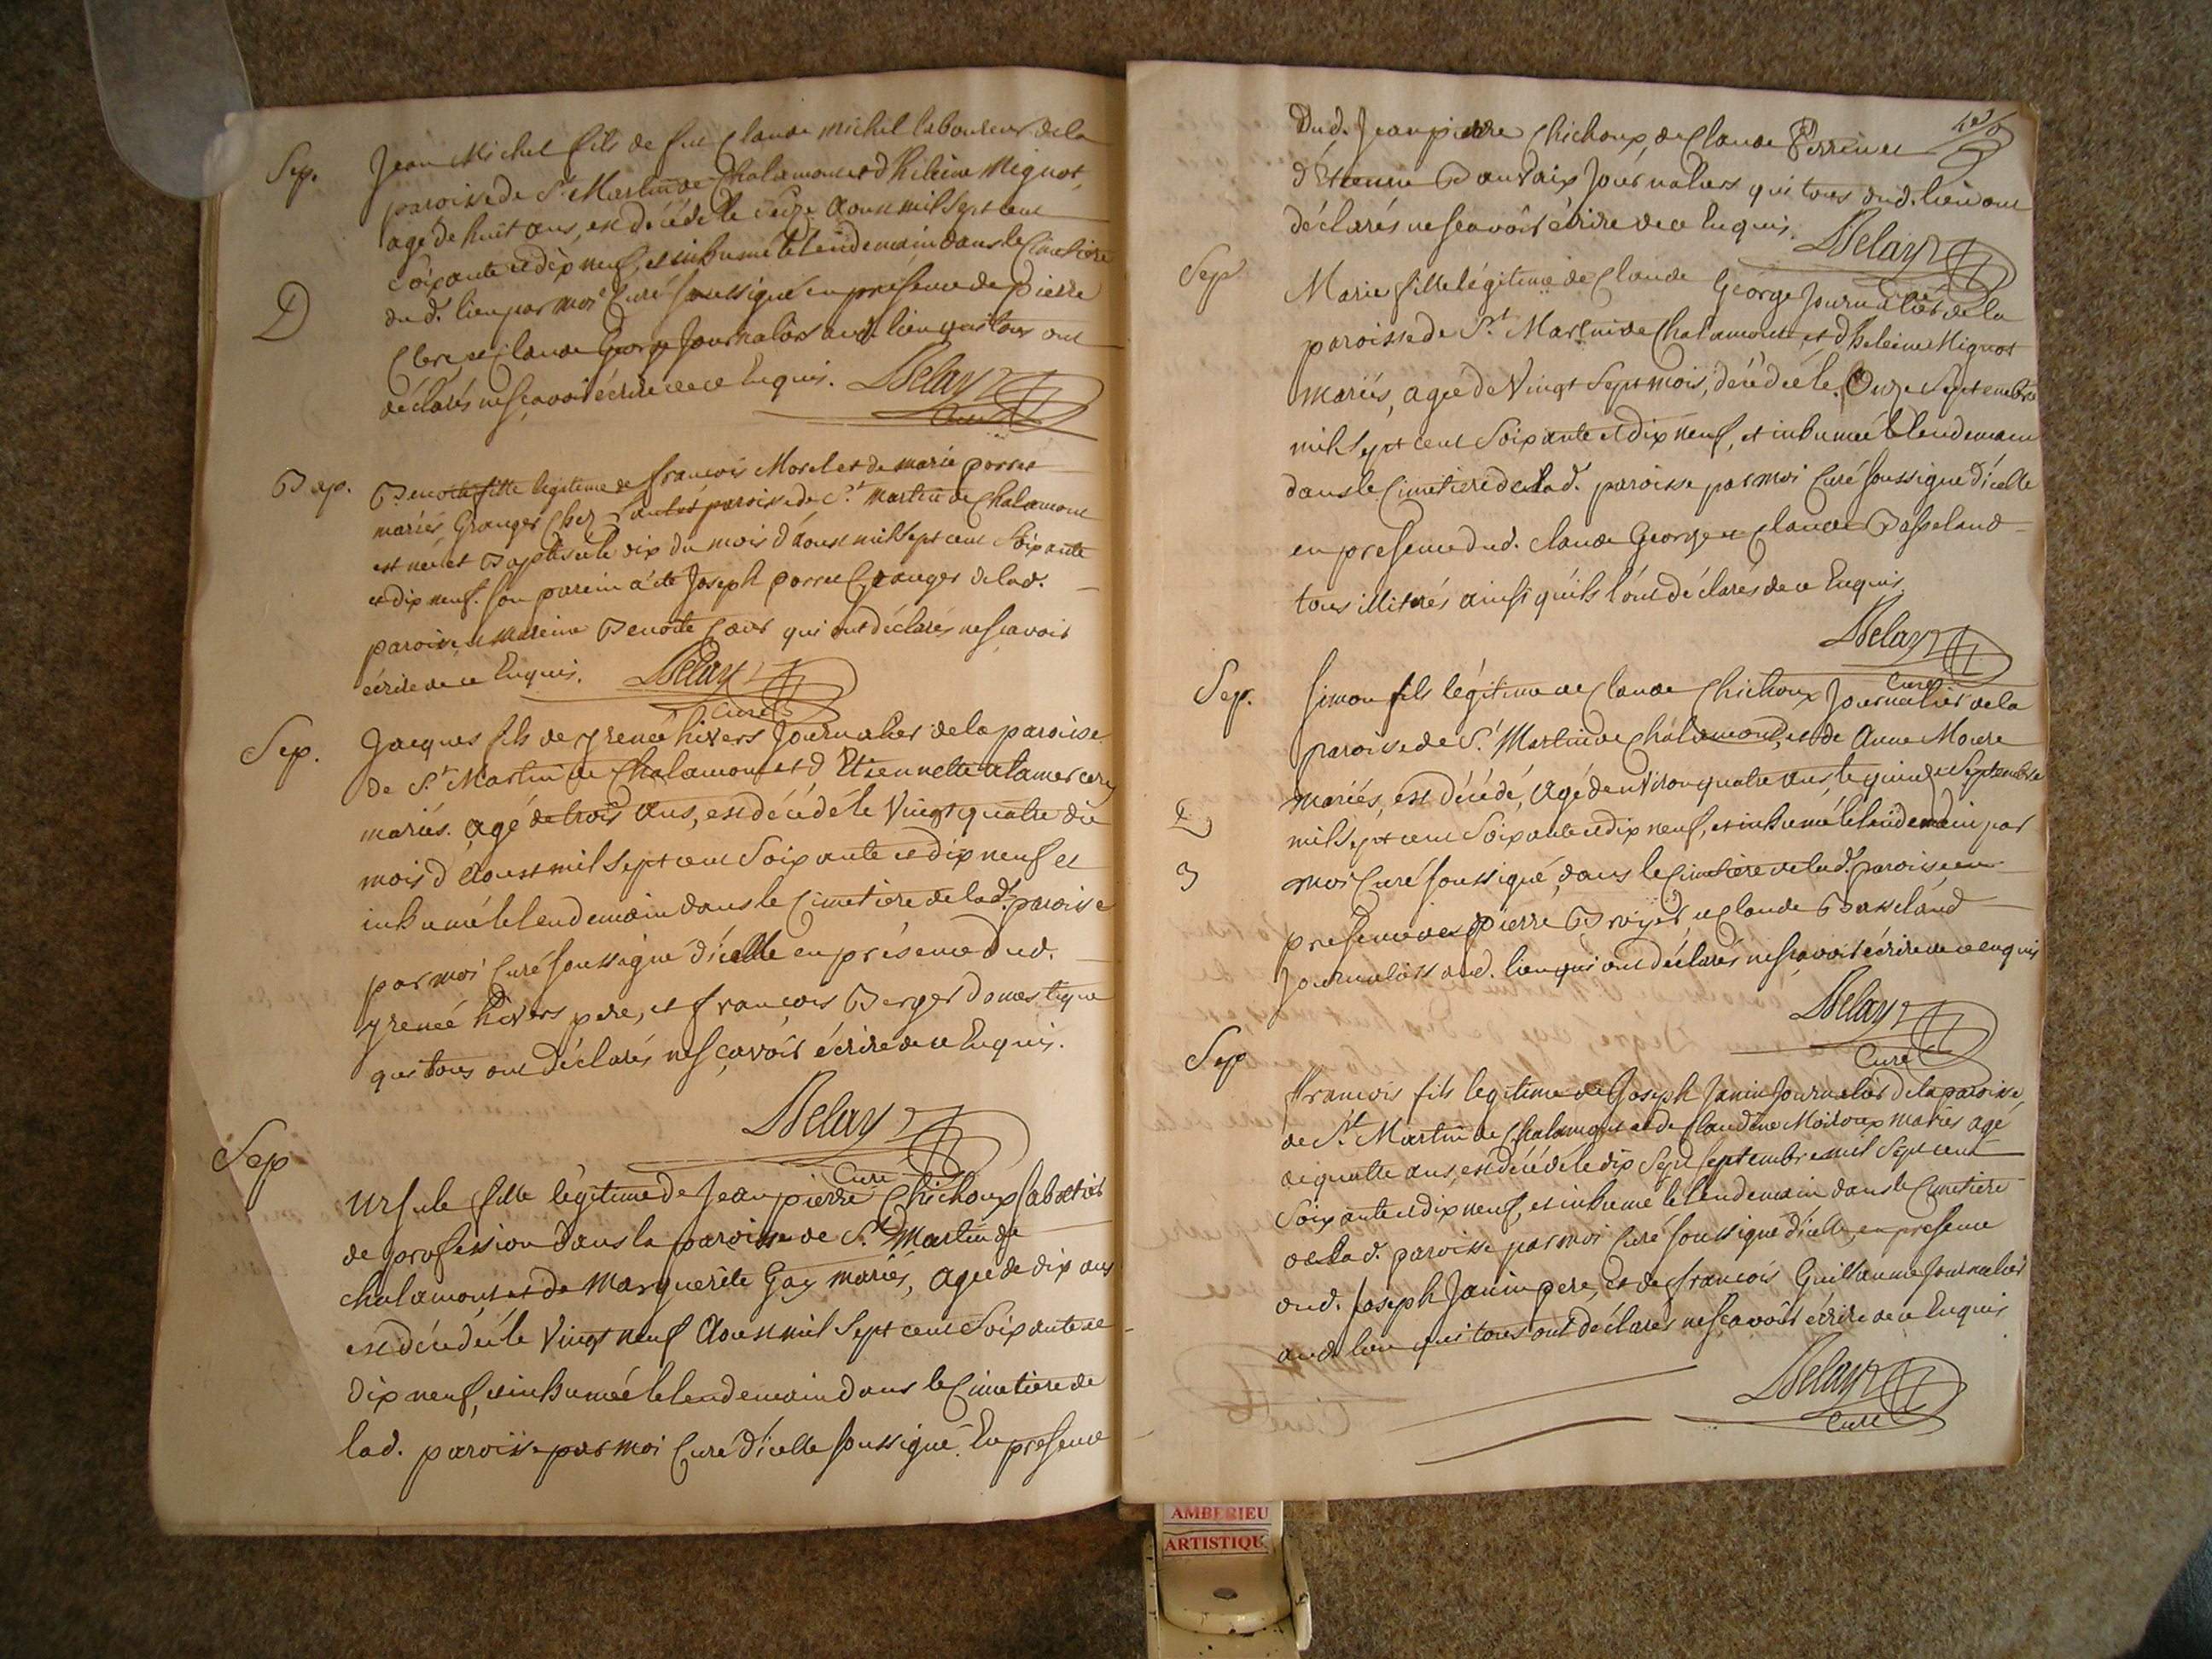 Sep.
Jean Michel fils de feu Claude Michel laboureur de la
paroisse de St Martin de Chalamont et d'heleine Mignot,
agé de huit ans, est décédé le seize aoust mil sept cent
soixante et dix neuf, et inhumé le lendemain dans le Cimetiere
D
du d. lieu par moi Curé soussigné en présence de pierre
et Claude George Journaliers aud. lieu qui tous ont
déclarés ne sçavoir écrire de ce Enquis. Delay
Curé
Bap.
Benoite fille legitime de françois Morel et de marie porret
mariés Granger Chez paroisse de St martin de Chalamont
est née et Baptisée le dix du mois d'aoust mil sept cent soixante
et dix neuf. son parein a été Joseph porret Granger de lad.
paroisse, et mareine Benoite qui ont déclarés ne sçavoir
écrire de ce Enquis. Delay
Curé
Sep.
Jacques fils de yrenée hivers Journalier de la paroisse
de St Martin de Chalamont et d'Etiennette alamercery
mariés. agé de trois ans, est décédé le vingt quatre du
mois d'aoust mil sept cent soixante et dix neuf et
inhumé le lendemain dans le Cimetiere de lad. paroisse
par moi Curé soussigné d'icelle en présence dud.
yrenée hivers pere, et françois Berger domestique
qui tous ont déclarés ne sçavoir écrire de ce Enquis.
Delay
Curé
Sep
Ursule fille légitime de Jean pierre Chichoux sabotier
de profession dans la paroisse de St Martin de
chalamont et de Marguerite Gay mariés, agée de dix ans
est décédée le vingt neuf Aoust mil sept cent soixante et
dix neuf, et inhumée le lendemain dans le Cimetiere de
lad. paroisse par moi Curé d'icelle soussigné. En presence
Dud. Jean pierre Chichoux, de Claude Perrin et
d'Etienne Bauvaix Journaliers qui tous dud. lieu ont
déclarés ne sçavoir écrire de ce Enquis. Delay
Curé
Sep
Marie fille légitime de Claude George Journalier de la
paroisse de St Martin de Chalamont, et d'heleine Mignot
mariés, agée de vingt sept mois, decédée le Onze septembre
mil sept cent soixante et dix neuf, et inhumée le lendemain
dans le Cimetiere de lad. paroisse par moi Curé soussigné d'icelle
en presence dud. claude George et Claude Basseland
tous illiterés ainsi qu'ils l'ont déclarés de ce Enquis
Delay
Curé
Sep.
Simon fils légitime de Claude Chichoux Journalier de la
paroisse de St Martin de Chalamont, et de Anne Moure
mariés, est décédé, agé denviron quatre ans, le quinze septembre
mil sept cent soixante et dix neuf, et inhumé le lendemain par
3
moi Curé soussigné, dans le Cimetiere de lad. paroisse en
presence de Pierre Broyer, et Claude Basseland
Journaliers aud. lieu qui ont déclarés ne sçavoir écrire de ce enquis
Delay
Curé
Sep
francois fils legitime de Joseph Janin Journalier de la paroisse,
de St Martin de Chalamont et de Claudine Moiroux mariés agé
de quatre ans, est décédé le dix sept septembre mil sept cent
soixante et dix neuf, et inhumé le lendemain dans le Cimetiere
de lad. paroisse par moi Curé soussigné d'icelle, en presence
dud. Joseph Janin pere, et de francois Guillaume Journalier
aud. lieu qui tous ont déclarés ne sçavoir écrire de ce Enquis
Delay
Curé
AMBERIEU
ARTISTIQU